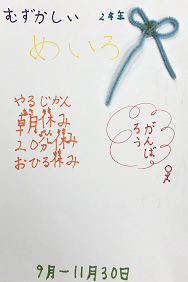 むずかしい 2年生
めいろ
やるじかん
朝休み
20分休み
おひる休み
がんばろう
9月-11月30日